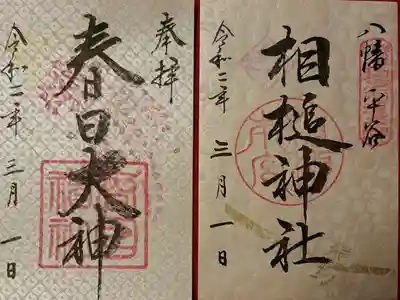 奉拝
春日大神
令和二年三月一日
八幡平谷
相槌神社
令和二年三月一日